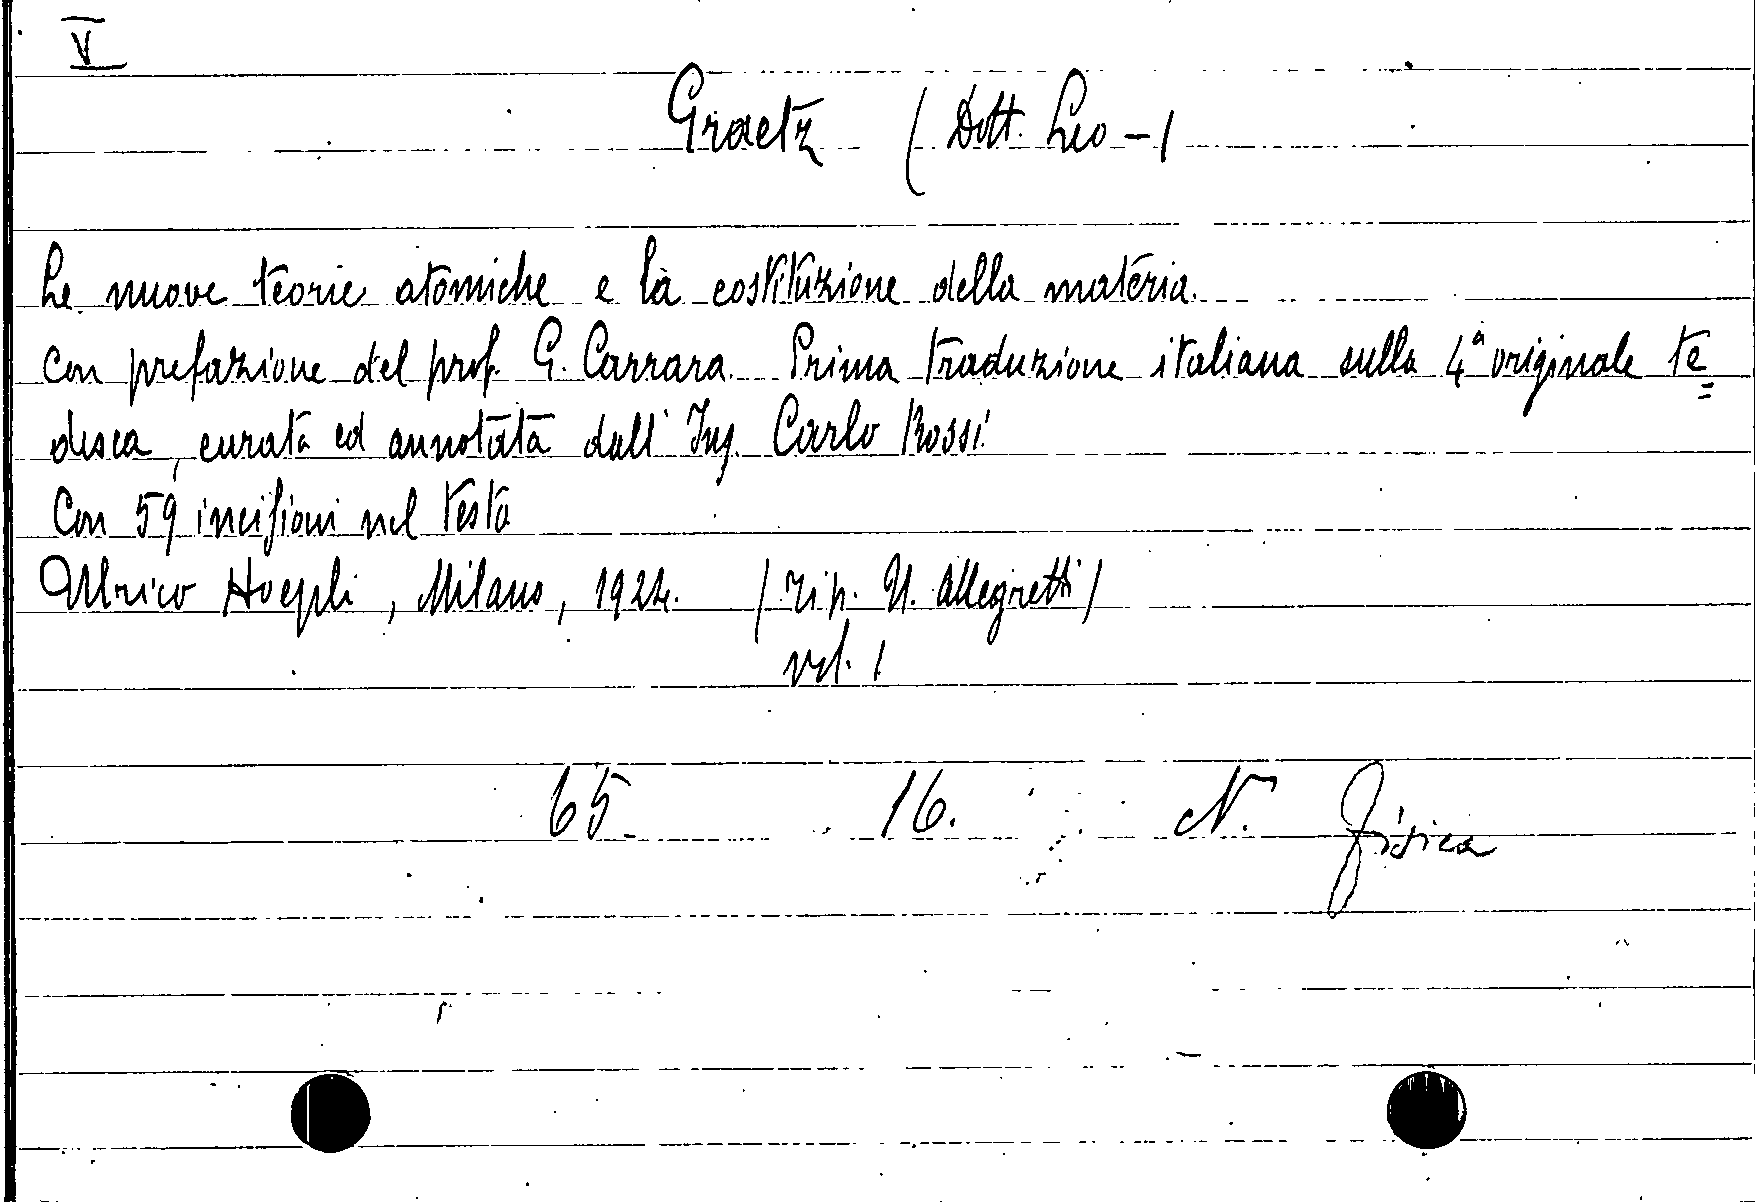 V
Graetz (Dott. Leo -)
Le nuove teorie atomiche e la costituzione della materia.
Con prefazione del prof. G. Carrara. Prima traduzione italiana sulla 4ª originale te=
desca, curata ed annotata dall'Ing. Carlo Rossi
Con 59 incisioni nel testo
Ulrico Hoepli, Milano, 1924. (tip. U. Allegretti)
vol. 1
65. 16. N. fisica